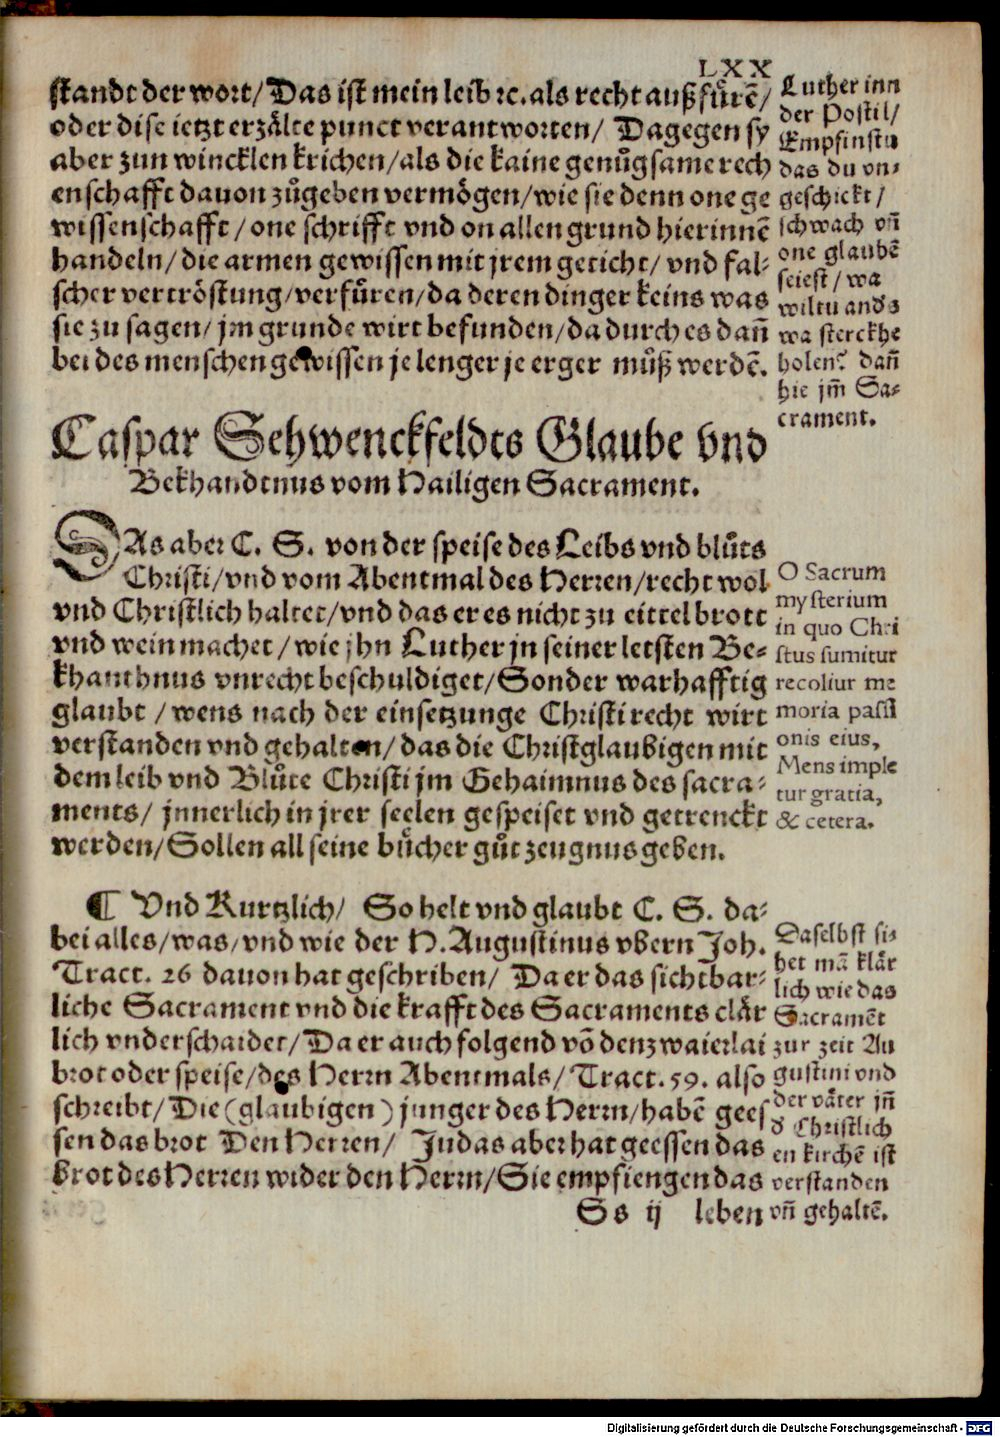 LXX
standt der wort/ Das ist mein leib ꝛc. als recht außfuͤrē/
oder dise ietzt erzaͤlte punct verantworten/ Dagegen sy
aber zun wincklen krichen/ als die kaine genuͤgsame rech
enschafft dauon zuͦgeben vermoͤgen/ wie sie denn one ge
wissenschafft/ one schrifft vnd on allen grund hierinnē
handeln/ die armen gewissen mit jrem geticht/ vnd fal⸗
scher vertroͤstung/ verfuͤren/ da deren dinger keins was
sie zu sagen/ jm grunde wirt befunden/ da durch es dañ
bei des menschen gewissen je lenger je erger muͦß werdē.
Luther inn
der Postil/
Empfinstu
das du vn⸗
geschickt/
schwach vñ
one glaubē
seiest/ wa
wiltu anders
wa sterckhe
holen? dañ
hie jm̃ Sa⸗
crament.
Caspar Schwenckfeldts Glaube vnd
Bekhandtnus vom Hailigen Sacrament.
DAs aber C. S. von der speise des Leibs vnd bluͦts
Christi/ vnd vom Abentmal des Herren/ recht wol
vnd Christlich haltet/ vnd das er es nicht zu eittel brott
vnd wein machet/ wie jhn Luther jn seiner letsten Be⸗
khanthnus vnrecht beschuldiget/ Sonder warhafftig
glaubt/ wens nach der einsetzunge Christi recht wirt
verstanden vnd gehalten/ das die Christglaubigen mit
dem leib vnd Bluͦte Christi jm Gehaimnus des sacra⸗
ments/ jnnerlich in jrer seelen gespeiset vnd getrenckt
werden/ Sollen all seine buͤcher guͦt zeugnus geben.
O Sacrum
mysterium
in quo Chri
stus sumitur
recoliur me
moria passi
onis eius,
Mens imple
tur gratia,
& cetera.
¶ Vnd Kurtzlich/ So helt vnd glaubt C. S. da⸗
bei alles/ was/ vnd wie der H. Augustinus vbern Joh.
Tract. 26 dauon hat geschriben/ Da er das sichtbar⸗
liche Sacrament vnd die krafft des Sacraments claͤr
lich vnderschaidet/ Da er auch folgend võ den zwaierlai
brot oder speise/ des Herrn Abentmals/ Tract. 59. also
schreibt/ Die (glaubigen) junger des Herrn/ habē gees
sen das brot Den Herren/ Judas aber hat geessen das
brot des Herren wider den Herrn/ Sie empfiengen das
Daselbst si⸗
het mã klaͤr
lich wie das
Sacramēt
zur zeit Au
gustini vnd
der vaͤter jñ
d Christlich
en kirchē ist
verstanden
vñ gehaltē.
Ss ij leben
Digitalisierung gefördert durch die Deutsche Forschungsgemeinschaft - DFG